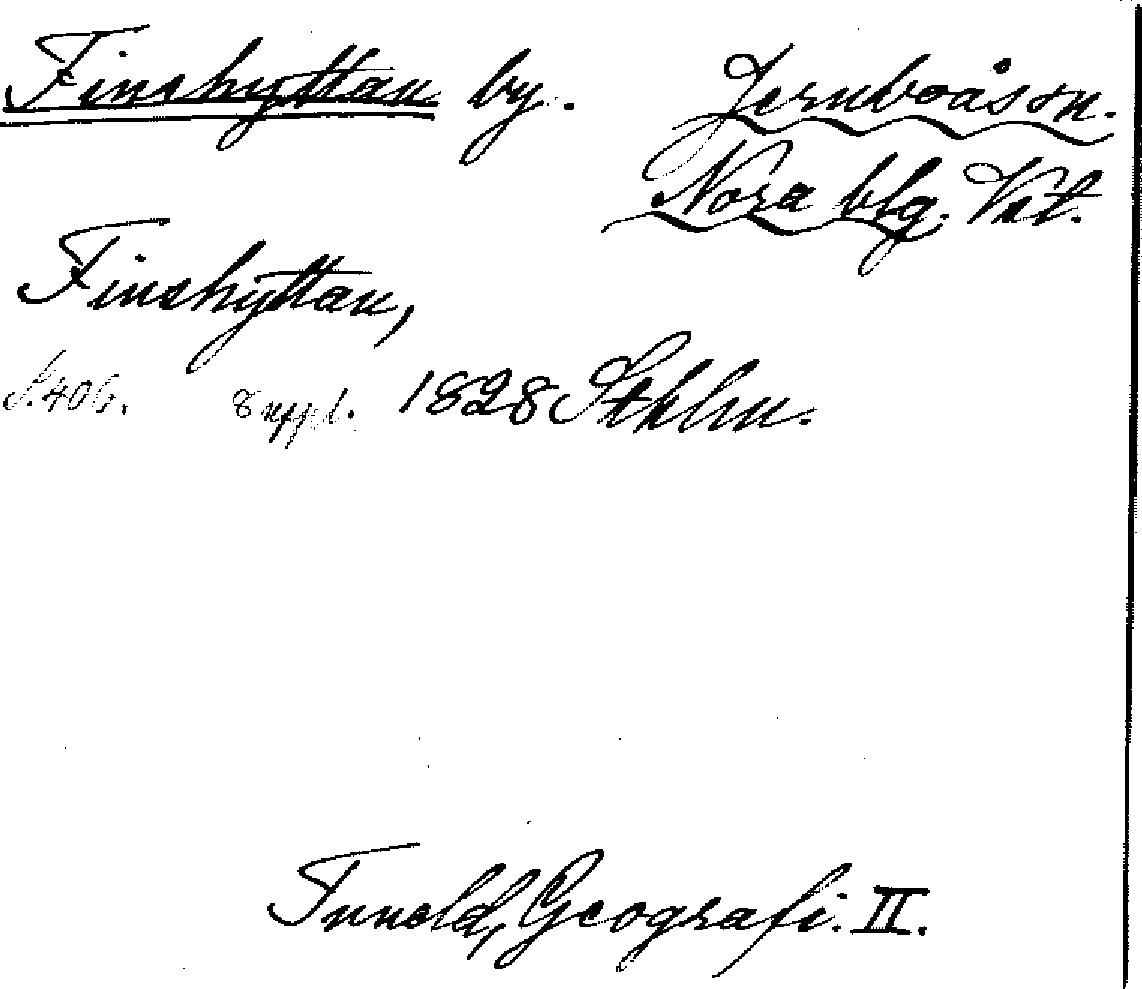 Finshyttan by. Jernboåson.
Nora blg. Vstl.
Finshyttan,
S. 406. Suppl. 1828 Sthlm.
Tuneld, Geografi. II.